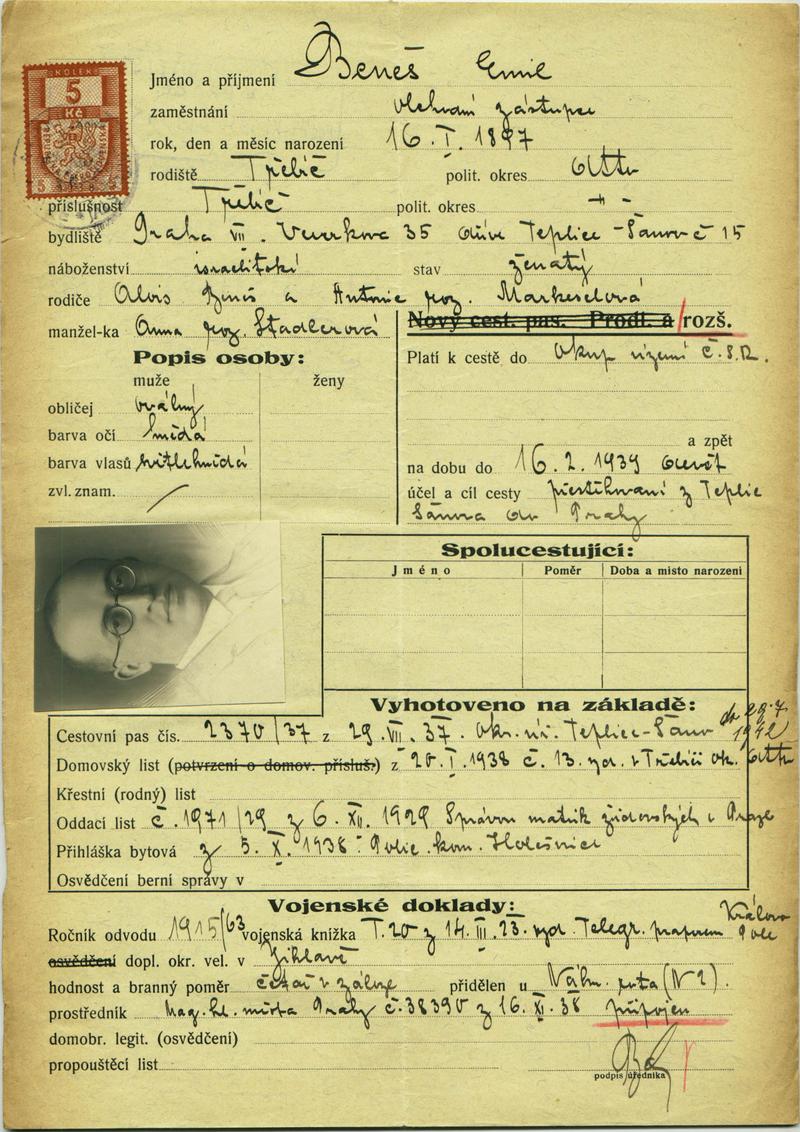 KOLEK
5
Kč
Jméno a příjmení Beneš Emil
zaměstnání obchodní zástupce
rok, den a měsíc narození 16. I. 1897
rodiště Třebíč polit. okres
příslušnost Třebíč polit. okres -"-
bydliště Praha VII. Veverkova 35 dříve Teplice-Šanov č 15
náboženství israelitské stav ženatý
rodiče Alois Beneš a Antonie roz.
manžel-ka Anna roz. Stadlerová
Nový cest. pas. Prodl. a rozš.
Popis osoby:
muže ženy
Platí k cestě do okup. území č. S. R.
obličej oválný
barva očí hnědá
a zpět
barva vlasů světlehnědá
na dobu do 16. 2. 1939
zvl. znam. /
účel a cíl cesty přestěhování z Teplic
Šanova do Prahy
Spolucestující:
Jméno Poměr Doba a místo narození
Vyhotoveno na základě:
do 29.7.
1942
Cestovní pas čís. 2370/37 z 29. VII. 37. Okr. úř. Teplice-Šanov
Domovský list (potvrzení o domov. přísluš.) z 20. I. 1938 č. 13. vyd. v Třebíči ok.
Křestní (rodný) list
Oddací list č. 1971/29 z 6. XII. 1929 Správou matrik židovských v Praze
Přihláška bytová z 5. X. 1938 Polic. kom. Holešovice
Osvědčení berní správy v
Vojenské doklady:
Ročník odvodu 1915/63 vojenská knížka T. 20 z 14. III. 23. vyd. Telegr. praporem Královo
Pole
osvědčení dopl. okr. vel. v Jihlavě
hodnost a branný poměr četař v záloze přidělen u Náhr. rota (N 2).
prostředník Mag. hl. města Prahy č. 38390 z 16. XI. 38 připojen
domobr. legit. (osvědčení)
propouštěcí list
podpis úředníka